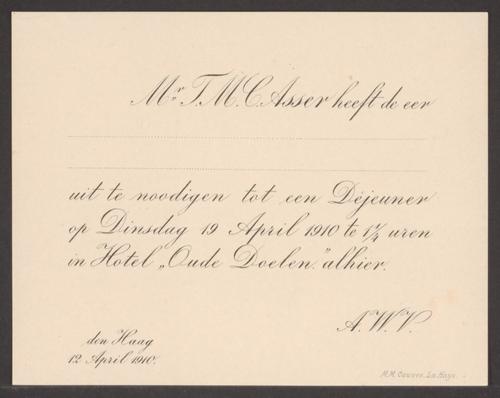 Mr. T.M.C. Asser heeft de eer
uit te noodigen tot een Déjeuner
op Dinsdag 19 April 1910 te 1¼ uren
in Hotel „Oude Doelen." alhier.
A.W.V.
den Haag
12 April 1910.
M.M. Couvée. La Haye.